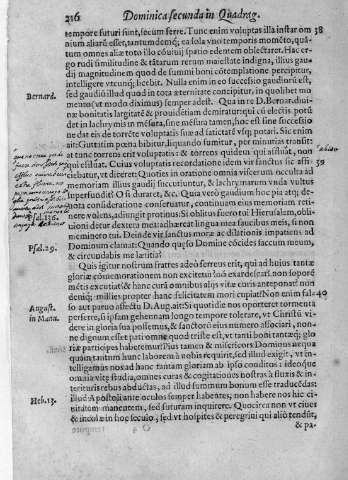 236 Dominica secunda in Quadrag.
tempore futuri sint, secum ferre. Tunc enim voluptas illa instar om 38
nium aliarũ esset, tantumdemq; ea sola vno temporis momẽto, quã-
tum omnes aliæ toto illo cõuiuij spatio edentem oblectaret. Hac er-
go rudi similitudine & tãtarum rerum maiestate indigna, illius gau-
dij magnitudinem quod de summi boni cõtemplatione percipitur,
intelligere vtcunq; licebit. Nulla enim in eo successio gaudiorũ est,
sed gaudiũ illud quod in tota æternitate concipitur, in quolibet mo
mento (vt modo diximus) semper adest. Qua in re D. Bernar. diui-
Bernard.
næ bonitatis largitatẽ & prouidẽtiam demiratur: qui cũ electis potũ
det in lachrymis in mẽsura, sine mẽsura tamen, hoc est sine successio
ne dat eis de torrẽte voluptatis suæ ad satietatẽ vsq; potari. Sic enim
ait: Guttatim pœna bibitur, liquando sumitur, per minutias transit:
at tunc torrens erit voluptatis: & torrens quidem qui affluat, non
qui effluat. Cuius voluptatis recordatione idem vir sanctus sic affi-
39
ciebatur, vt diceret: Quoties in oratione omnia viscerum occulta ad
memoriam illius gaudij succutiuntur, & lachrymarum vnda vultus
superfundit? O si duraret, &c. Qua verò gaudium hoc pia atq; de-
uota consideratione conseruatur, continuam eius memoriam reti-
nere volens, adiungit protinus: Si oblitus fuero tui Hierusalem, obli-
Psal. 136.
uioni detur dextera mea: adhæreat lingua mea faucibus meis, si non
meminero tui. Inde vir sanctus præ mora ac dilationis impatiens ad
Psal. 29.
Dominum clamat: Quando quęso Domine cõcides saccum meum,
& circundabis me lætitia?
Quis igitur nostrum fratres adeò ferreus erit, qui ad huius tantæ
gloriæ cõmemorationem non excitetur
metis excutiat? & hanc curã omnibus alijs vitæ curis anteponat?
deniq; millies propter hanc felicitatem mori cupiat! Non enim fal- 40
so aut paruo affectu D. Aug. ait: Si quotidie nos oporteret tormenta
August.
in Manu.
perferre, si ipsam gehennam longo tempore tolerare, vt Christũ vi
dere in gloria sua possemus, & sanctorũ eius numero associari, non-
ne dignum esset pati omne quod triste est, vt tanti boni tantæq; glo
riæ participes haberemur? Pius tamen & misericors Dominus æqua
quam tantum hunc laborem à nobis requirit, sed illud exigit, vt in
telligamus nos ad hanc tantam gloriam ab ipso conditos: ideoque
omnia vitę studia, omnes curas & cogitationes nostras à fluxis & in-
terituris rebus abductas, ad illud summum bonum esse traducẽdas:
Heb. 13.
illud Apostoli ante oculos semper habentes, non habere nos hic ci-
uitatem manentem, sed futuram inquirere. Quocirca non vt ciues
& incolæ in hoc seculo, sed vt hospites & peregrini qui aliò tendũt,
& pa-